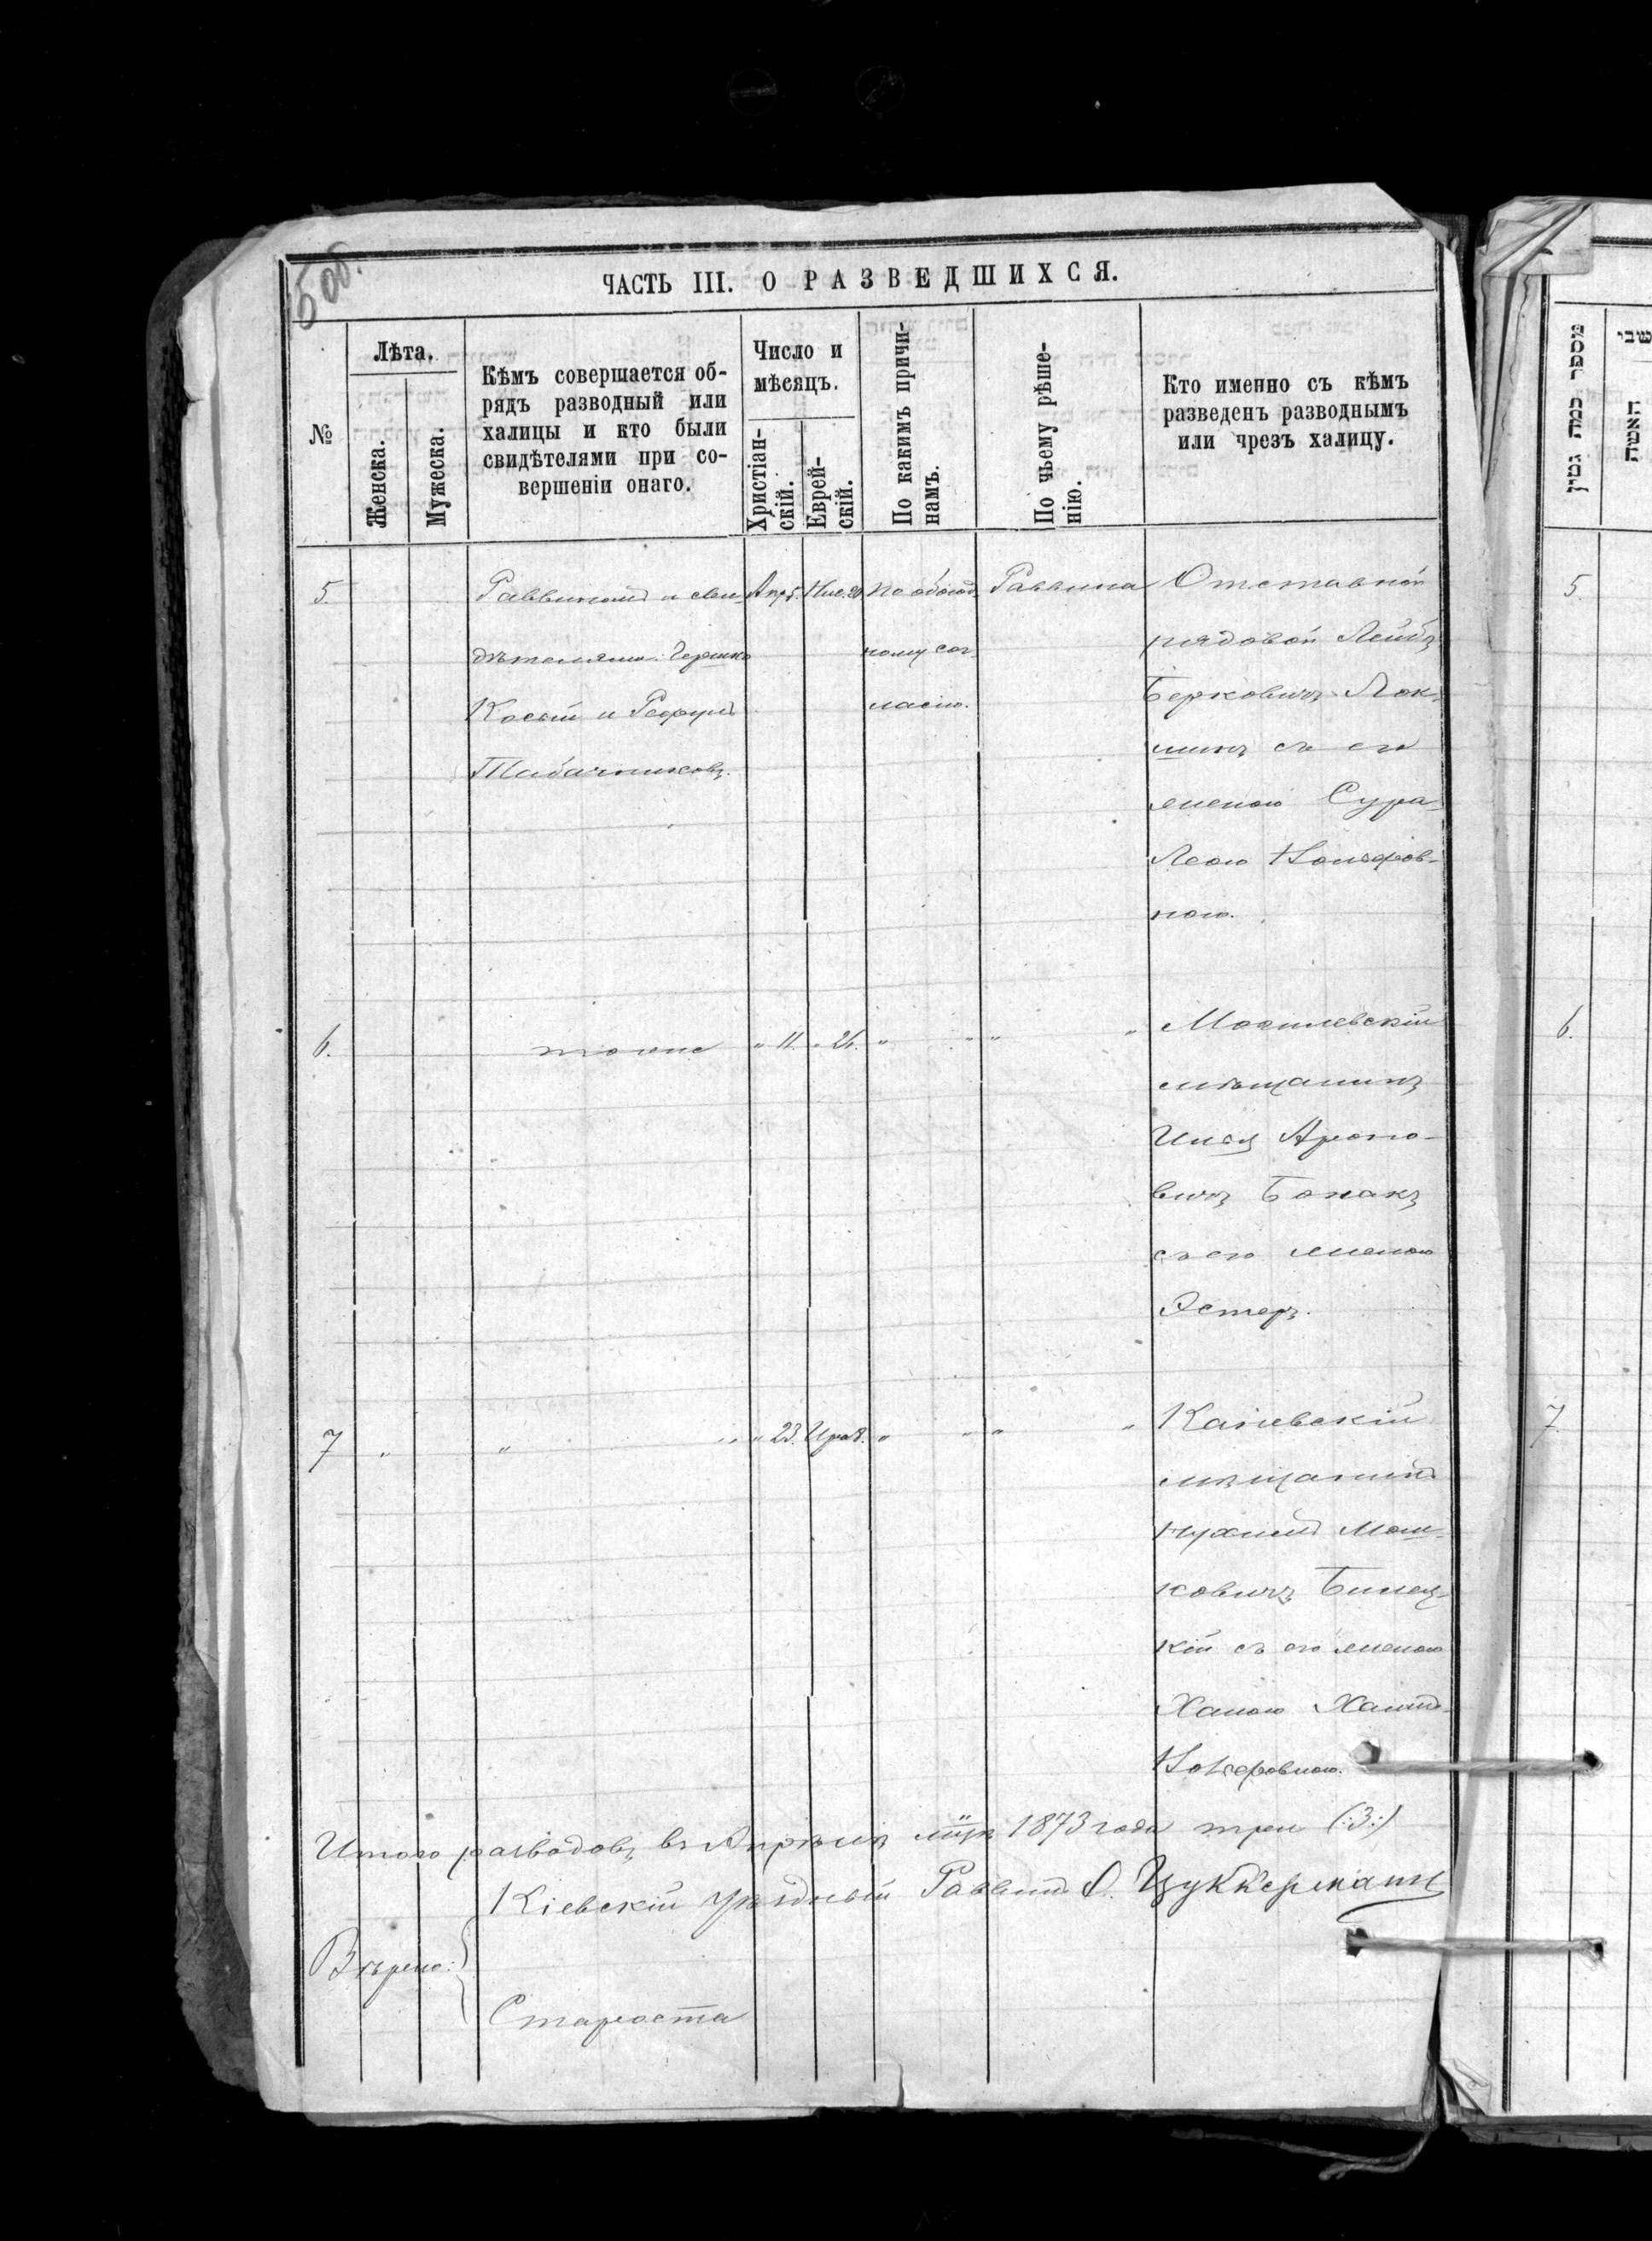 500.
ЧАСТЬ III. О РАЗВЕДШИХСЯ.
№
Лѣта.
Женска.
Мужеска.
Кѣмъ совершается об-
рядъ разводный или
халицы и кто были
свидѣтелями при со-
вершеніи онаго.
Число и
мѣсяцъ.
Христіан-
скій.
Еврей-
скій.
По какимъ причи-
намъ.
По чьему рѣше-
нію.
Кто именно съ кѣмъ
разведенъ разводнымъ
или чрезъ халицу.
5.
Раввиномъ и сви-
дѣтелями: Гершко
Косый и
Табачниковъ.
Апр 5.
Нис. 20
По обоюд-
ному сог-
ласію.
Раввина
Отставной
рядовой Лейбъ
Берковичъ
съ его
женою Сура-
Леею
ною.
6.
тоже
" 11.
" 26.
" "
" "
Могилевскій
мѣщанинъ
Иця Ароно-
вичъ
съ его женою
Эстеръ.
7
"
" "
" 23.
Ира 8.
" "
" "
Каневскій
мѣщанинъ
Нухимъ Мош-
ковичъ Билец-
кій съ его женою
Ханою
Итого разводовъ въ Апрѣлѣ мцѣ 1873 года три (:3:)
Кіевскій уѣздный Раввинъ О. Цуккерманъ
Вѣрно:
Староста
מספר כמה גטין
האשה
שבי
5
6.
7.